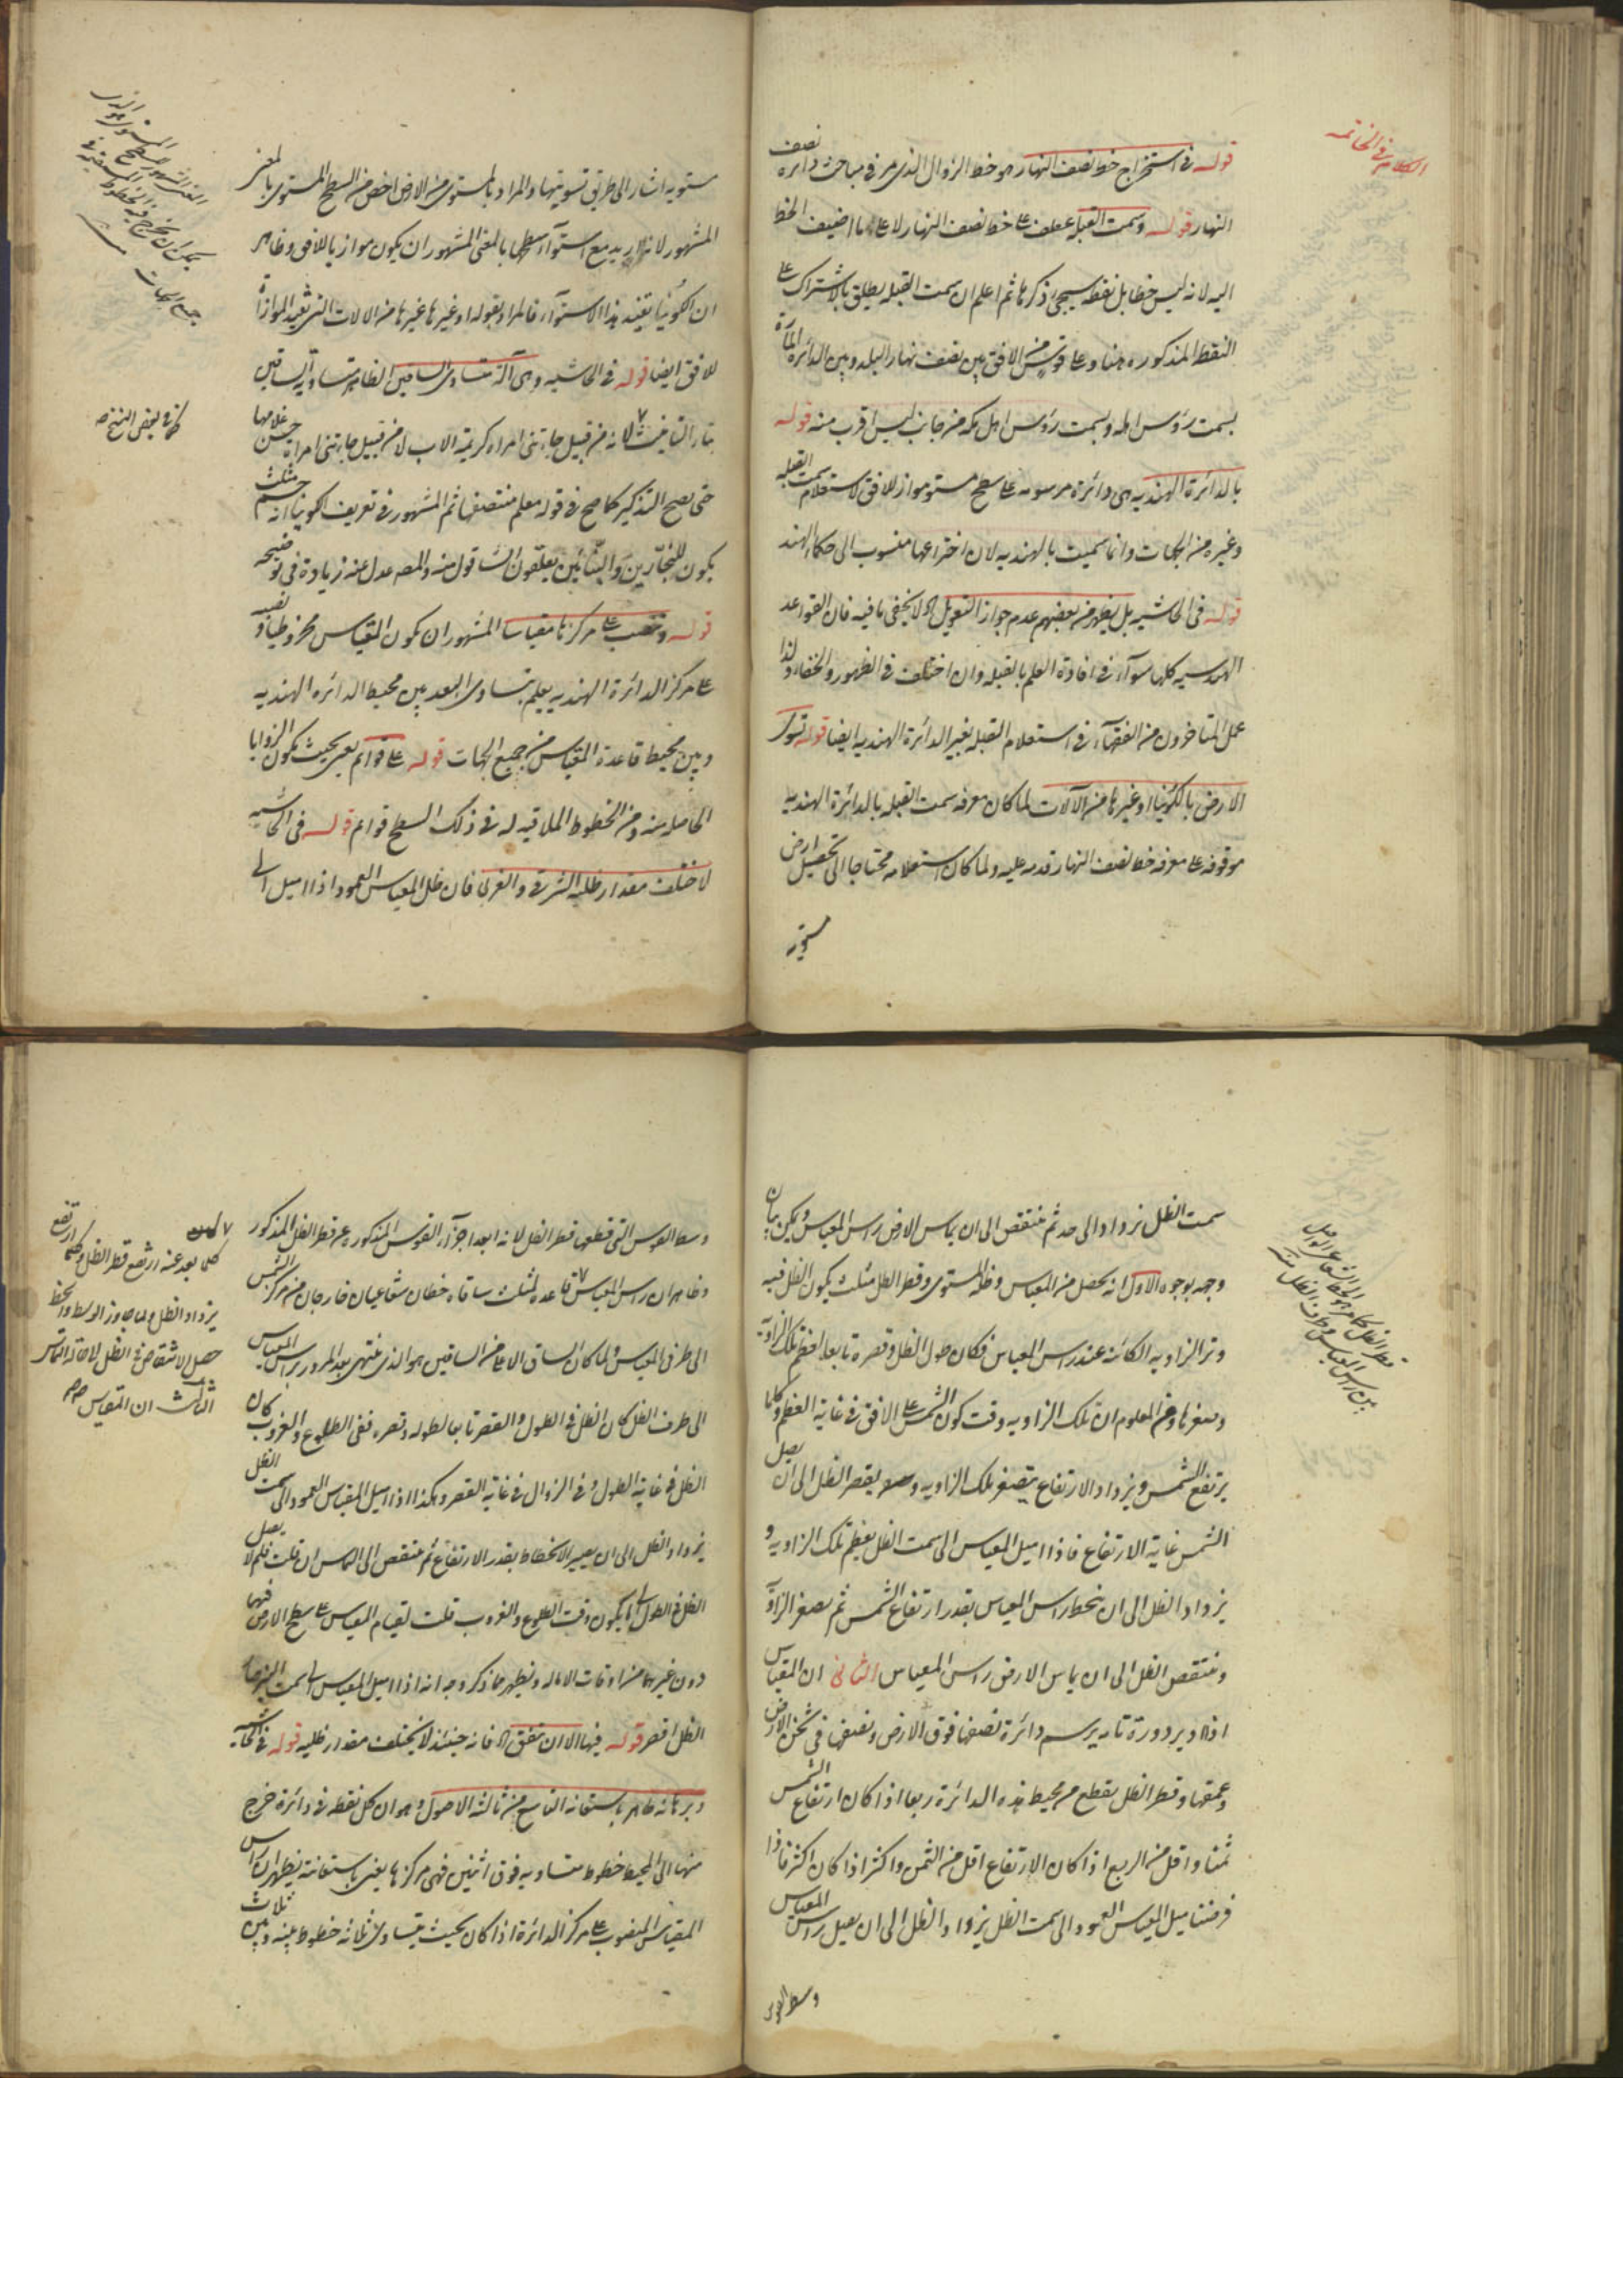 الكلام في الخاتمة
قوله في استخراج خط نصف النهار هو خط الزوال الذي مر في مباحث دائرة نصف
النهار قوله وسمت القبلة عطف على خط نصف النهار لا على ما اضيف الخط
اليه لانه ليس خطا بل نقطة سيجئ ذكرها ثم اعلم ان سمت القبلة يطلق بالاشتراك على
النقط المذكورة هنا وعلى قوس من الافق بين نصف نهار البلد وبين الدائرة المارة
بسمت رؤس اهله وبسمت رؤس اهل مكه من جانب ليس اقرب منه قوله
بالدائرة الهندية هي دائرة مرسومه على سطح مستو مواز للافق لاستعلام سمت القبلة
وغيره من الجهات وانما سميت بالهندية لان اختراعها منسوب الى حكماء الهند
قوله في الحاشيه بل يظهر من بعضهم عدم جواز التعويل اه لا يخفى ما فيه فان القواعد
الهندسيه كلها سوآء في افادة العلم بالقبلة وان اختلف في الظهور والخفاء ولذا
عمل المتاخرون من الفقهآء في استعلام القبلة بغير الدائرة الهندية ايضا قوله تسوى
الارض بالكونيا او غيرها من الآلات لما كان معرفه سمت القبله بالدائرة الهنديه
موقوفه على معرفه خط نصف النهار قدمه عليه ولما كان استعلامه محتاجا الى تحصيل ارض
مستويه
مستويه اشار الى طريق تسويتها والمراد بالمستوى من الارض اخص من السطح المستوى بالمعنى
المشهور لانه اريد مع استوآء سطحها بالمعنى المشهور ان يكون موازيا للافق وظاهر
ان الكونيا يفيد هذا الاستوآء فالمراد بقوله او غيرها غيرها من الالات التي تفيد الموازاة
للافق ايضا قوله في الحاشيه وهي آلة متساوى الساقين الظاهر متساوية الساقين
بتاء التانيث لانه من قبيل جاءتنى امراه كريمة الاب لا من قبيل جاءتنى امراه حسن غلامها
حتى يصح التذكير كما صح في قوله معلم منتصفها ثم المشهور في تعريف الكونيا انه جسم مثلث
يكون للنجارين والبنائين يعلقون الشاقول منه والمصه عدل عنه زيادة في توضيحه
قوله وتنصب على مركزها مقياسا المشهور ان يكون المقياس مخروطيا ونصبه
على مركز الدائرة الهنديه يعلم بتساوى البعد بين محيط الدائره الهنديه
وبين محيط قاعدة المقياس من جميع الجهات قوله على قوائم يعنى بحيث يكون الزوايا
الحاصله منه ومن الخطوط الملاقيه له في ذلك السطح قوائم قوله في الحاشيه
لاختلف مقدار ظليه الشرقى والغربى فان ظل المقياس العمود اذا اميل الى
كذا في بعض النسخ صح
سمت الظل يزداد الى حد ثم ينتقص الى ان يماس الارض راس المقياس ويمكن بيان
وجهه بوجوه الاول انه يحصل من المقياس وظله المستوى وقطر الظل مثلث يكون الظل فيه
وتر الزاويه الكائنه عند راس المقياس فكان طول الظل وقصره تابعا لعظم تلك الزاوية
وصغرها ومن المعلوم ان تلك الزاويه وقت كون الشمس على الافق في غاية العظم وكلما
يرتفع الشمس ويزداد الارتفاع يتصغر تلك الزاويه ويقصر الظل الى ان يصل
الشمس غاية الارتفاع فاذا اميل المقياس الى سمت الظل يعظم تلك الزاويه و
يزداد الظل الى ان ينحط راس المقياس بقدر ارتفاع الشمس ثم يصغر الزاوية
وينتقص الظل الى ان يماس الارض راس المقياس الثاني ان المقياس
اذا ادير دورة تامه يرسم دائرة نصفها فوق الارض ونصفها في ثخن الارض
وعمقها وقطر الظل يقطع من محيط هذه الدائرة ربعا اذا كان ارتفاع الشمس
ثمنا واقل من الربع اذا كان الارتفاع اقل من الثمن واكثر اذا كان اكثر فاذا
فرضنا ميل المقياس العمود الى سمت الظل يزداد الظل الى ان يصل راس المقياس
وسط القوس
وسط القوس التي قطعها قطر الظل لانه ابعد اجزآء القوس المذكوره عن قطر الظل المذكور
وظاهر ان راس المقياس قاعده لمثلث ساقاه خطان شعاعيان خارجان من مركز الشمس
الى طرفى المقياس ولما كان الساق الاعلى من الساقين هو الذى ينتهى بعد المرور براس المقياس
الى طرف الظل كان الظل في الطول والقصر تابعا لطوله وقصره ففى الطلوع والغروب كان
الظل في غاية الطول وفى الزوال في غاية القصر وهكذا اذا اميل المقياس العمود الى سمت الظل
يزداد الظل الى ان يصير الانحطاط بقدر الارتفاع ثم ينتقص الى التماس ان قلت فلم لا يصل
الظل في الطول الى ما يكون وقت الطلوع والغروب قلت لقيام المقياس على سطح الارض فيهما
دون غيرهما من اوقات الاماله ويظهر مما ذكر وجه انه اذا اميل المقياس الى سمت النير صار
الظل اقصر قوله فيها الا ان يتفق اه فانه حينئذ لا يختلف مقدار ظليه قوله في الحاشيه
وبرهانه ظاهر باستعانه التاسع من ثالثه الاصول وهو ان كل نقطه في دائرة خرج
منها الى المحيط خطوط متساويه فوق اثنين فهى مركزها يعنى باستعانته يظهر ان راس
المقياس المنصوب على مركز الدائرة اذا كان بحيث يتساوى ثلاثه خطوط بينه وبين ثلاث
كلما بعد عنه ارتفع قطر الظل وكلما ارتفع
يزداد الظل ولما جاوز الوسط وانحط
حصل الانتقاص في الظل لا محاله الى التماس
الثالث ان المقياس صح